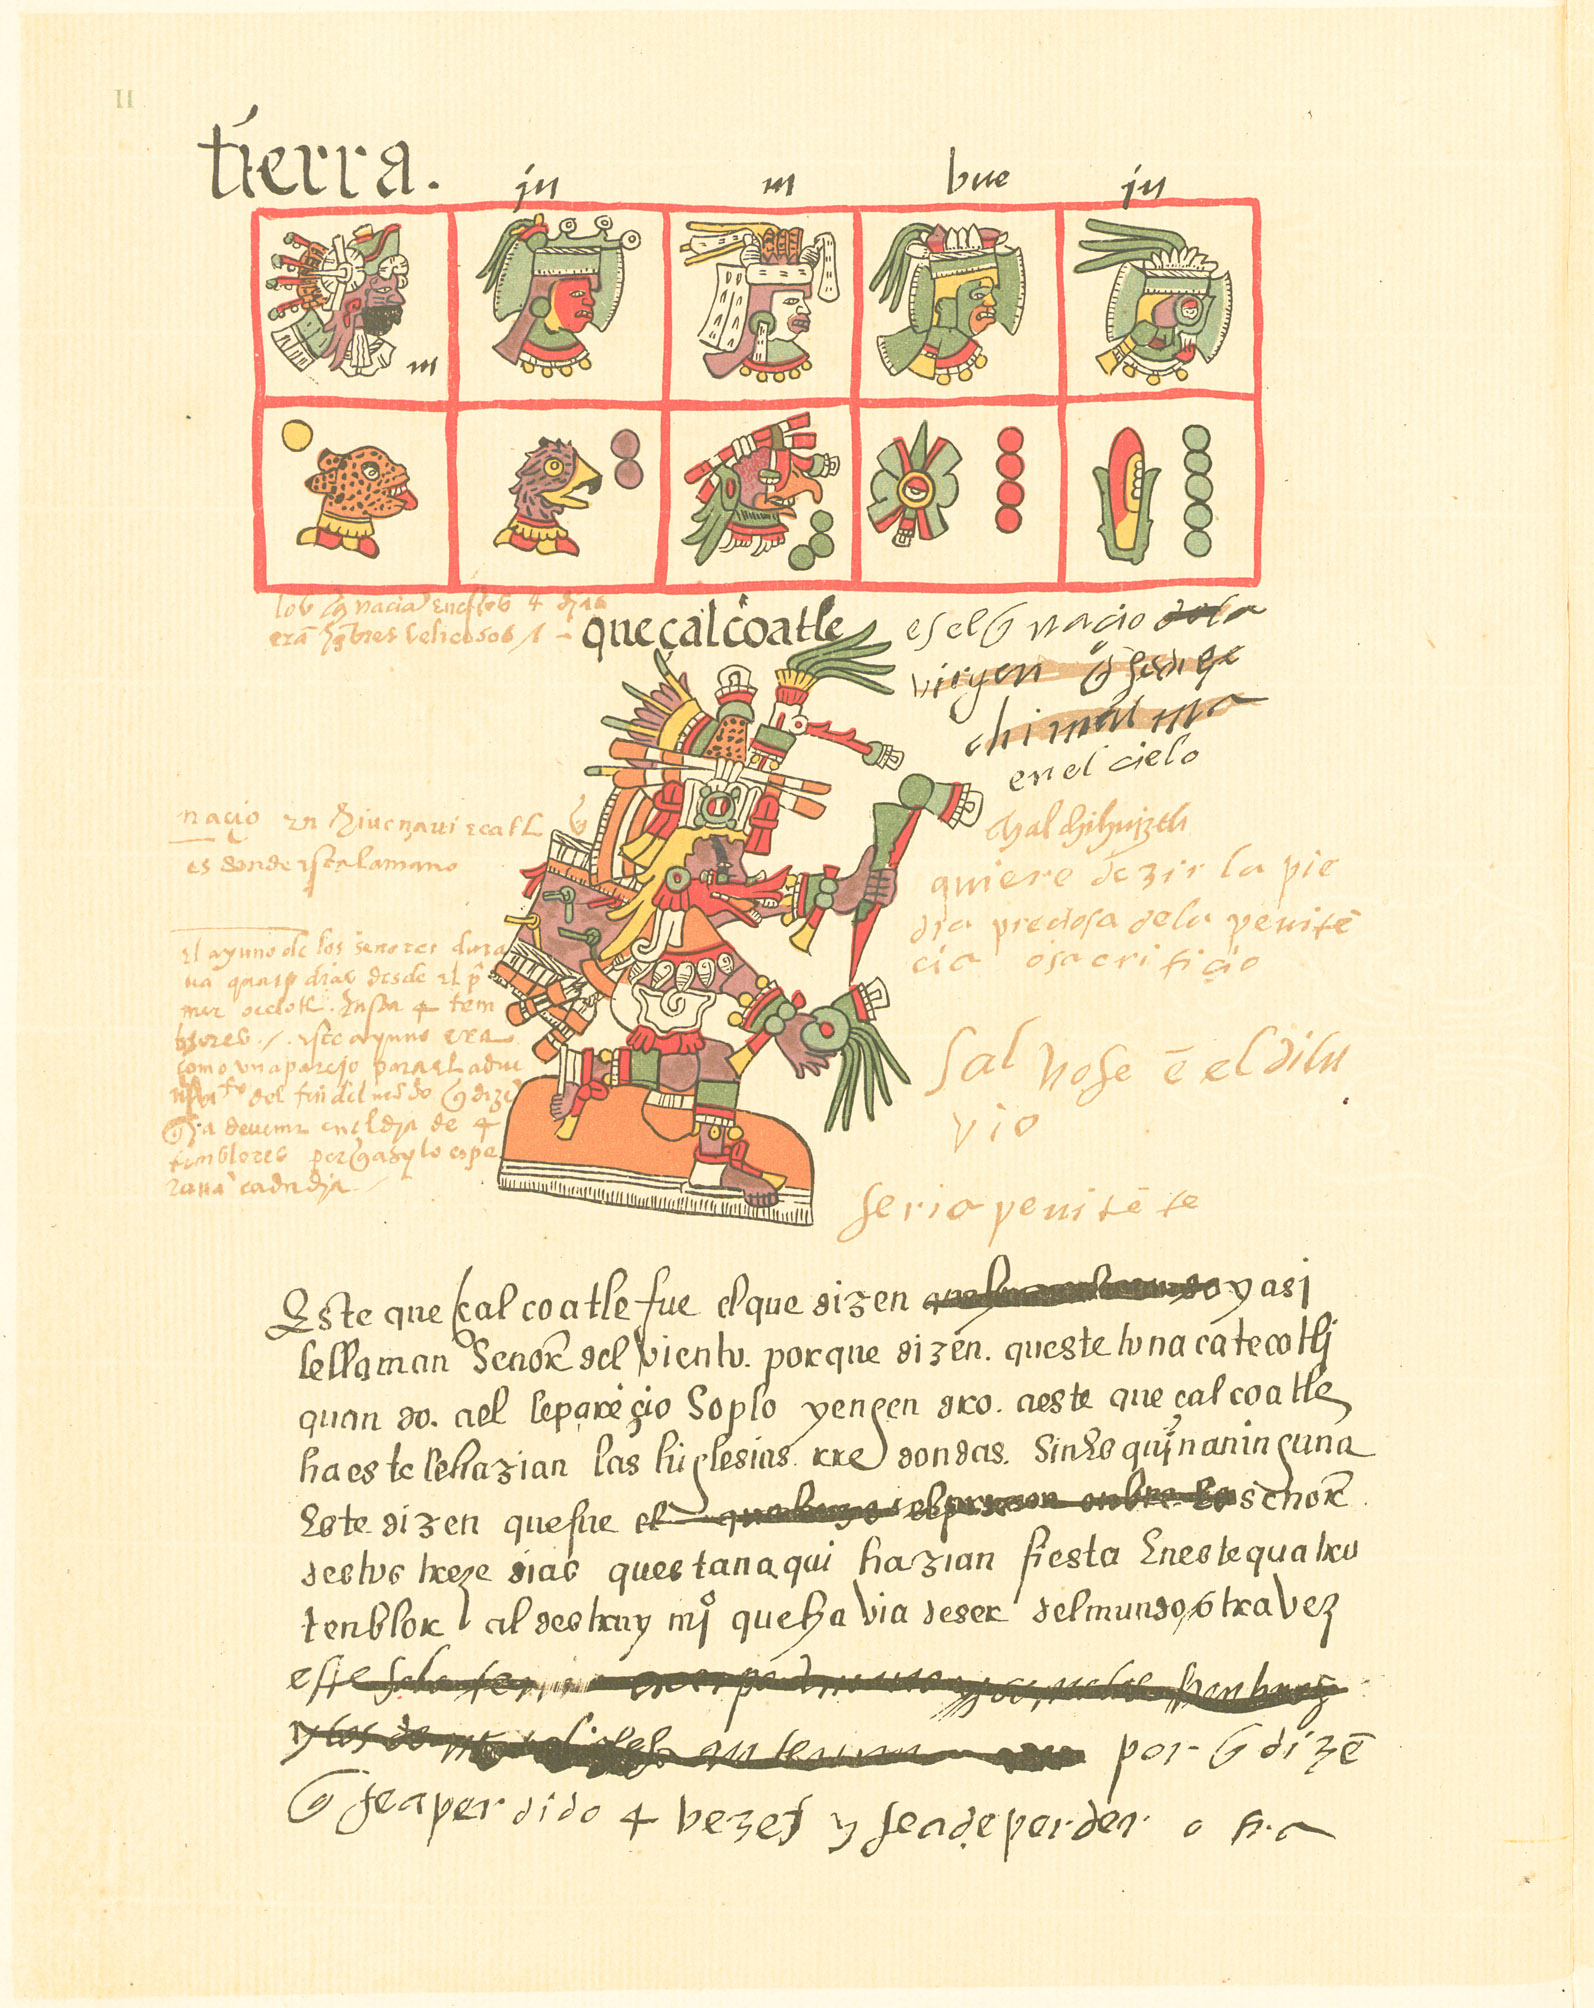 II
tierra.
ju
m
bue
ju
m
los q̃ nacia en estos 4 dias
erã hõbres belicosos
queçalcoatle
es el q̃ nacio de la
virgen q̃ se dize
chimalma
en el cielo
chalchihuiztli
quiere dezir la pie
dra preciosa de la penitẽ
cia o sacrificio
naçio en chiucnaui ecatl
es donde esta la mano
El ayuno de los señores dura
ua quatro dias desde el p̃
mer ocelotl. hasta 4 tem
blores. / este ayuno era
como un aparejo para el adue
del fin del mũdo q̃ dizẽ
q̃ a de venir en el dia de 4
temblores porq̃ asy lo espe
rauã cada dia
salvose ẽ el dilu
vio
serio penitẽte
Este queçalcoatle fue el que dizen y asi
le llaman Señor del viento. porque dizen. queste tonacatecotli
quando. a el le pareçio Soplo y engendro. a este queçalcoatle
ha este le hazian las higlesias. rredondas. Sin esquina ninguna
Este dizen que fue el señor
destos treze dias questan aqui hazian fiesta En este quatro
tenblor al destruymiº que havia de ser del mundo otra vez
este
por q̃ dizẽ
q̃ se a perdido 4 vezes y se a de perder otra